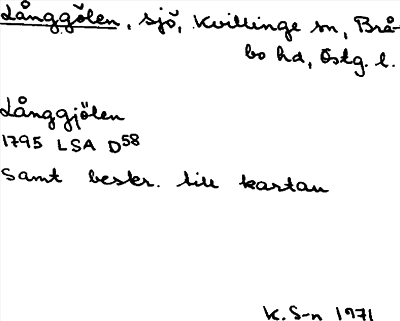 Långgölen, sjö, Kvillinge sn, Brå-
bo hd, Östg. l.
Långgjölen
1795 LSA D58
Samt beskr. till kartan
K. S-n 1971